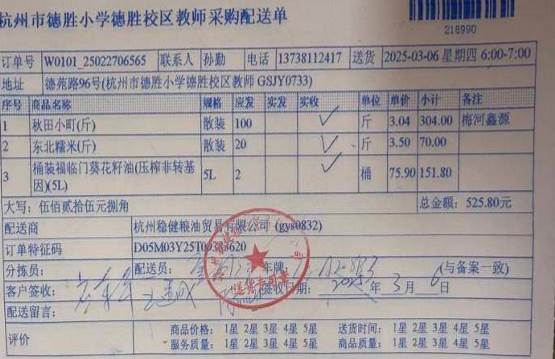 杭州市德胜小学德胜校区教师采购配送单
218990
订单号 W0101_25022706565 联系人 孙勤 电话 13738112417 送货 2025-03-06 星期四 6:00-7:00
地址 德苑路96号(杭州市德胜小学德胜校区教师 GSJY0733)
序号 商品名称 规格 应发 实发 实收 单位 单价 小计 备注
1 秋田小町(斤) 散装 100 ✓ 斤 3.04 304.00 梅河鑫源
2 东北糯米(斤) 散装 20 ✓ 斤 3.50 70.00
3 桶装福临门葵花籽油(压榨非转基因)(5L) 5L 2 ✓ 桶 75.90 151.80
大写: 伍佰贰拾伍元捌角 总金额: 525.80元
配送商 杭州稳健粮油贸易有限公司 (gys0832)
订单特征码
分拣员: 配送员: 车牌: (与备案一致)
客户签收: 签收日期: 2025年3月6日
配送留言:
评价 商品价格: 1星 2星 3星 4星 5星 送货时间: 1星 2星 3星 4星 5星
服务质量: 1星 2星 3星 4星 5星 商品质量: 1星 2星 3星 4星 5星